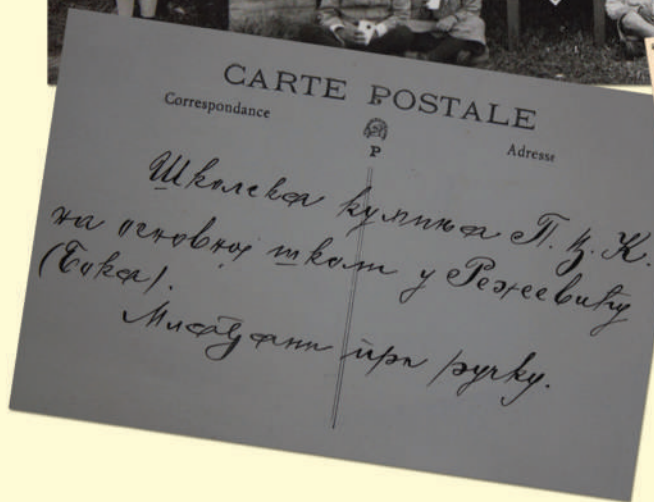 CARTE POSTALE
Correspondance
P
Adresse
Школска кухиња П. ц. К.
на основној школи у Режевићу
(Бока).
Млађани при ручку.